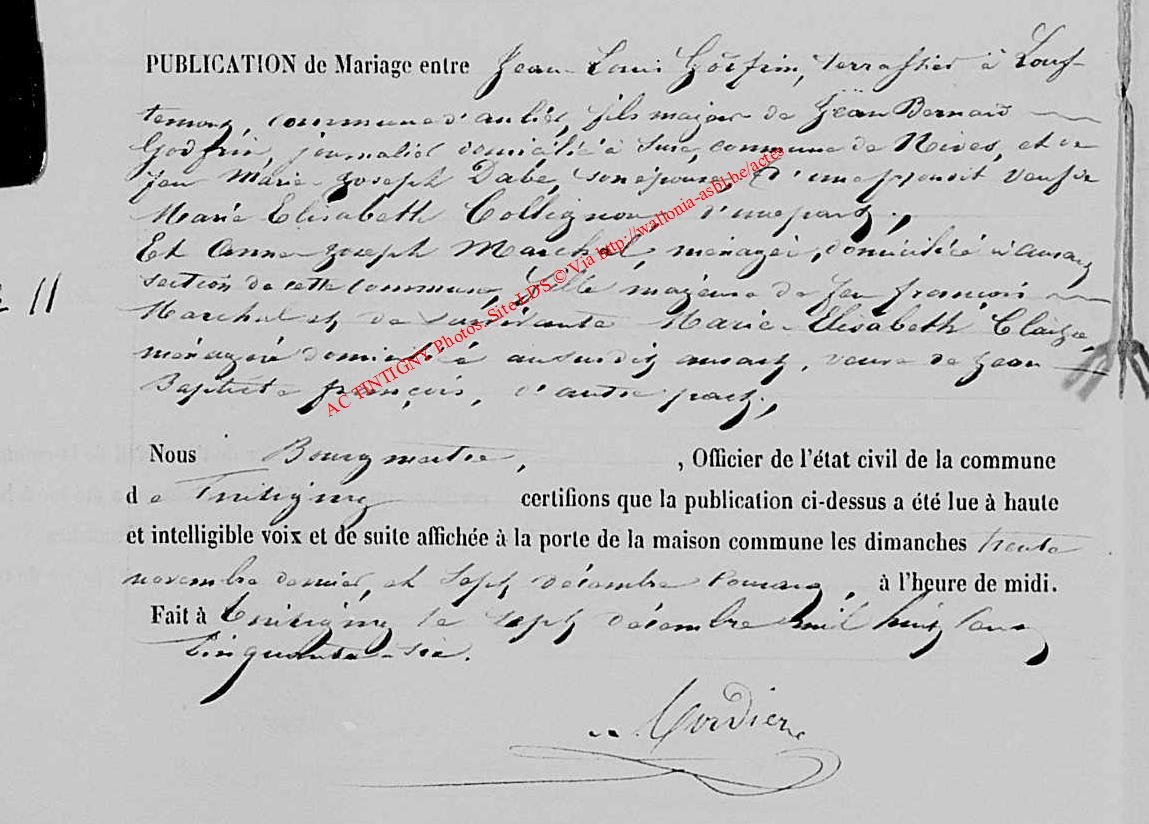 PUBLICATION de Mariage entre Jean-Louis Godfrin, terrassier à Louf-
temont, commune d'anlier, fils majeur de Jean Bernard
Godfrin, journalier domicilié à Sure, commune de Nives, et de
feu Marie-Joseph Dabe, son épouse, veuf de
Marie Elisabeth Collignon, d'une part,
Et Anne Joseph Marchal, ménagère, domiciliée à ansart
section de cette commune, fille majeure de feu françois
Marchal et de survivante Marie-Elisabeth Claisse,
ménagère domiciliée au susdit ansart, veuve de Jean
Baptiste françois, d'autre part,
11
Nous Bourgmestre, , Officier de l'état civil de la commune
de Tintigny certifions que la publication ci-dessus a été lue à haute
et intelligible voix et de suite affichée à la porte de la maison commune les dimanches trente
novembre dernier, et sept décembre courant, à l'heure de midi.
Fait à tintigny le sept décembre mil huit cent
cinquante-six.
AC TINTIGNY Photos. Site LDS © Via http://wallonia-asbl.be/actes